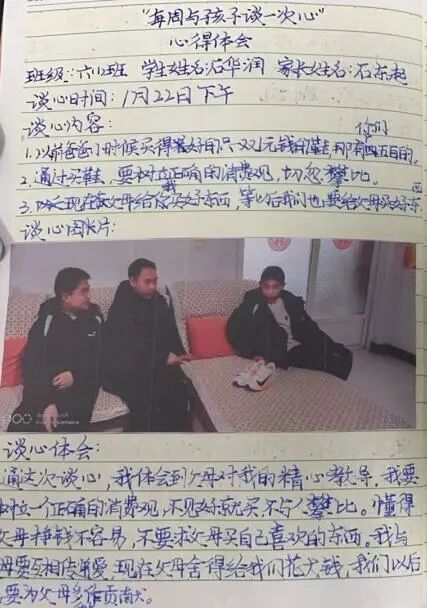 "每周与孩子谈一次心"
心得体会
班级:六(1)班 学生姓名:石华润 家长姓名:石东
谈心时间:1月22日下午
谈心内容:
你们
1.以前爸爸小时候买得最好的只21元钱的鞋,那有四五百的。
2.通过买鞋,要树立正确的消费观,切忽攀比。
3.现在父母给我买好东西,等以后我们也要给父母买好东西
谈心图片:
谈心体会:
通这次谈心,我体会到父母对我的精心教导,我要
树立一个正确的消费观,不见好就买,不与人攀比。懂得
父母挣钱不容易,不要求父母买自己喜欢的东西,我与
母要互相疼爱,现在父母舍得给我们花大钱,我们以后
要为父母多作贡献。